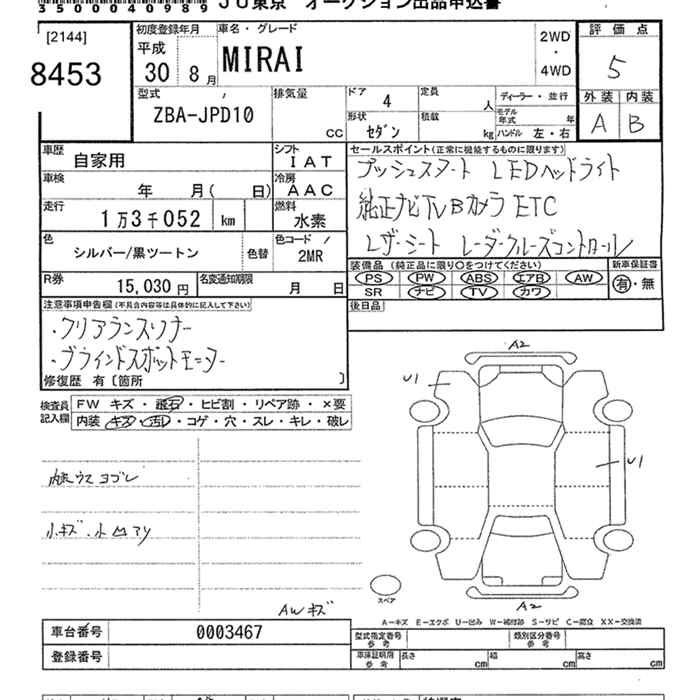 3 5 0 0 0 4 0 9 8 9 JU東京 オークション出品申込書
[2144]
8453
初度登録年月
平成
30年 8月
車名・グレード
MIRAI
2WD
・
4WD
評価点
5
外装 内装
A B
型式
ZBA-JPD10
排気量
cc
ドア
4
形状
セダン
定員
人
積載
kg
ディーラー・並行
モデル年式 年
ハンドル 左・右
車歴
自家用
シフト
IAT
車検
年 月( 日)
冷房
AAC
走行
1万3千052 km
燃料
水素
色
シルバー/黒ツートン
色替
色コード /
2MR
R券
15,030 円
名変通知期限
月 日
セールスポイント(正常に機能するものに限ります)
プッシュスタート LEDヘッドライト
純正ナビTVBカメラ ETC
レザーシート レーダークルーズコントロール
装備品(純正品に限り○をつけてください)
PS PW ABS エアB AW
SR ナビ TV カワ
新車保証書
有・無
後日品
注意事項申告欄(不具合内容等は具体的に記入して下さい)
・クリアランスソナー
・ブラインドスポットモニター
修復歴 有〔箇所 〕
検査員記入欄
FW キズ・飛石・ヒビ割・リペア跡・×要
内装 キズ・汚レ・コゲ・穴・スレ・キレ・破レ
内装ウスヨゴレ
小キズ・小凹アリ
AWキズ
A2
U1
U1
A2
スペア
A−キズ E−エクボ U−凹み W−補修跡 S−サビ C−腐食 XX−交換済
車台番号 0003467
登録番号
型式指定番号
参考
類別区分番号
参考
車庫証明用
参考
長さ cm 幅 cm 高さ cm